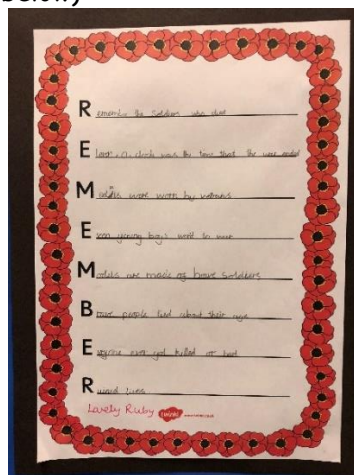 below)
Remember the Soldiers who died
Eleven o,clock was the time that the war ended
Medals were worn by
Even young boys went to war
Medals are made of brave soldiers
Brave people lied about their age
Everyone ever got killed or had
Ruined lives
Lovely Ruby twinkl